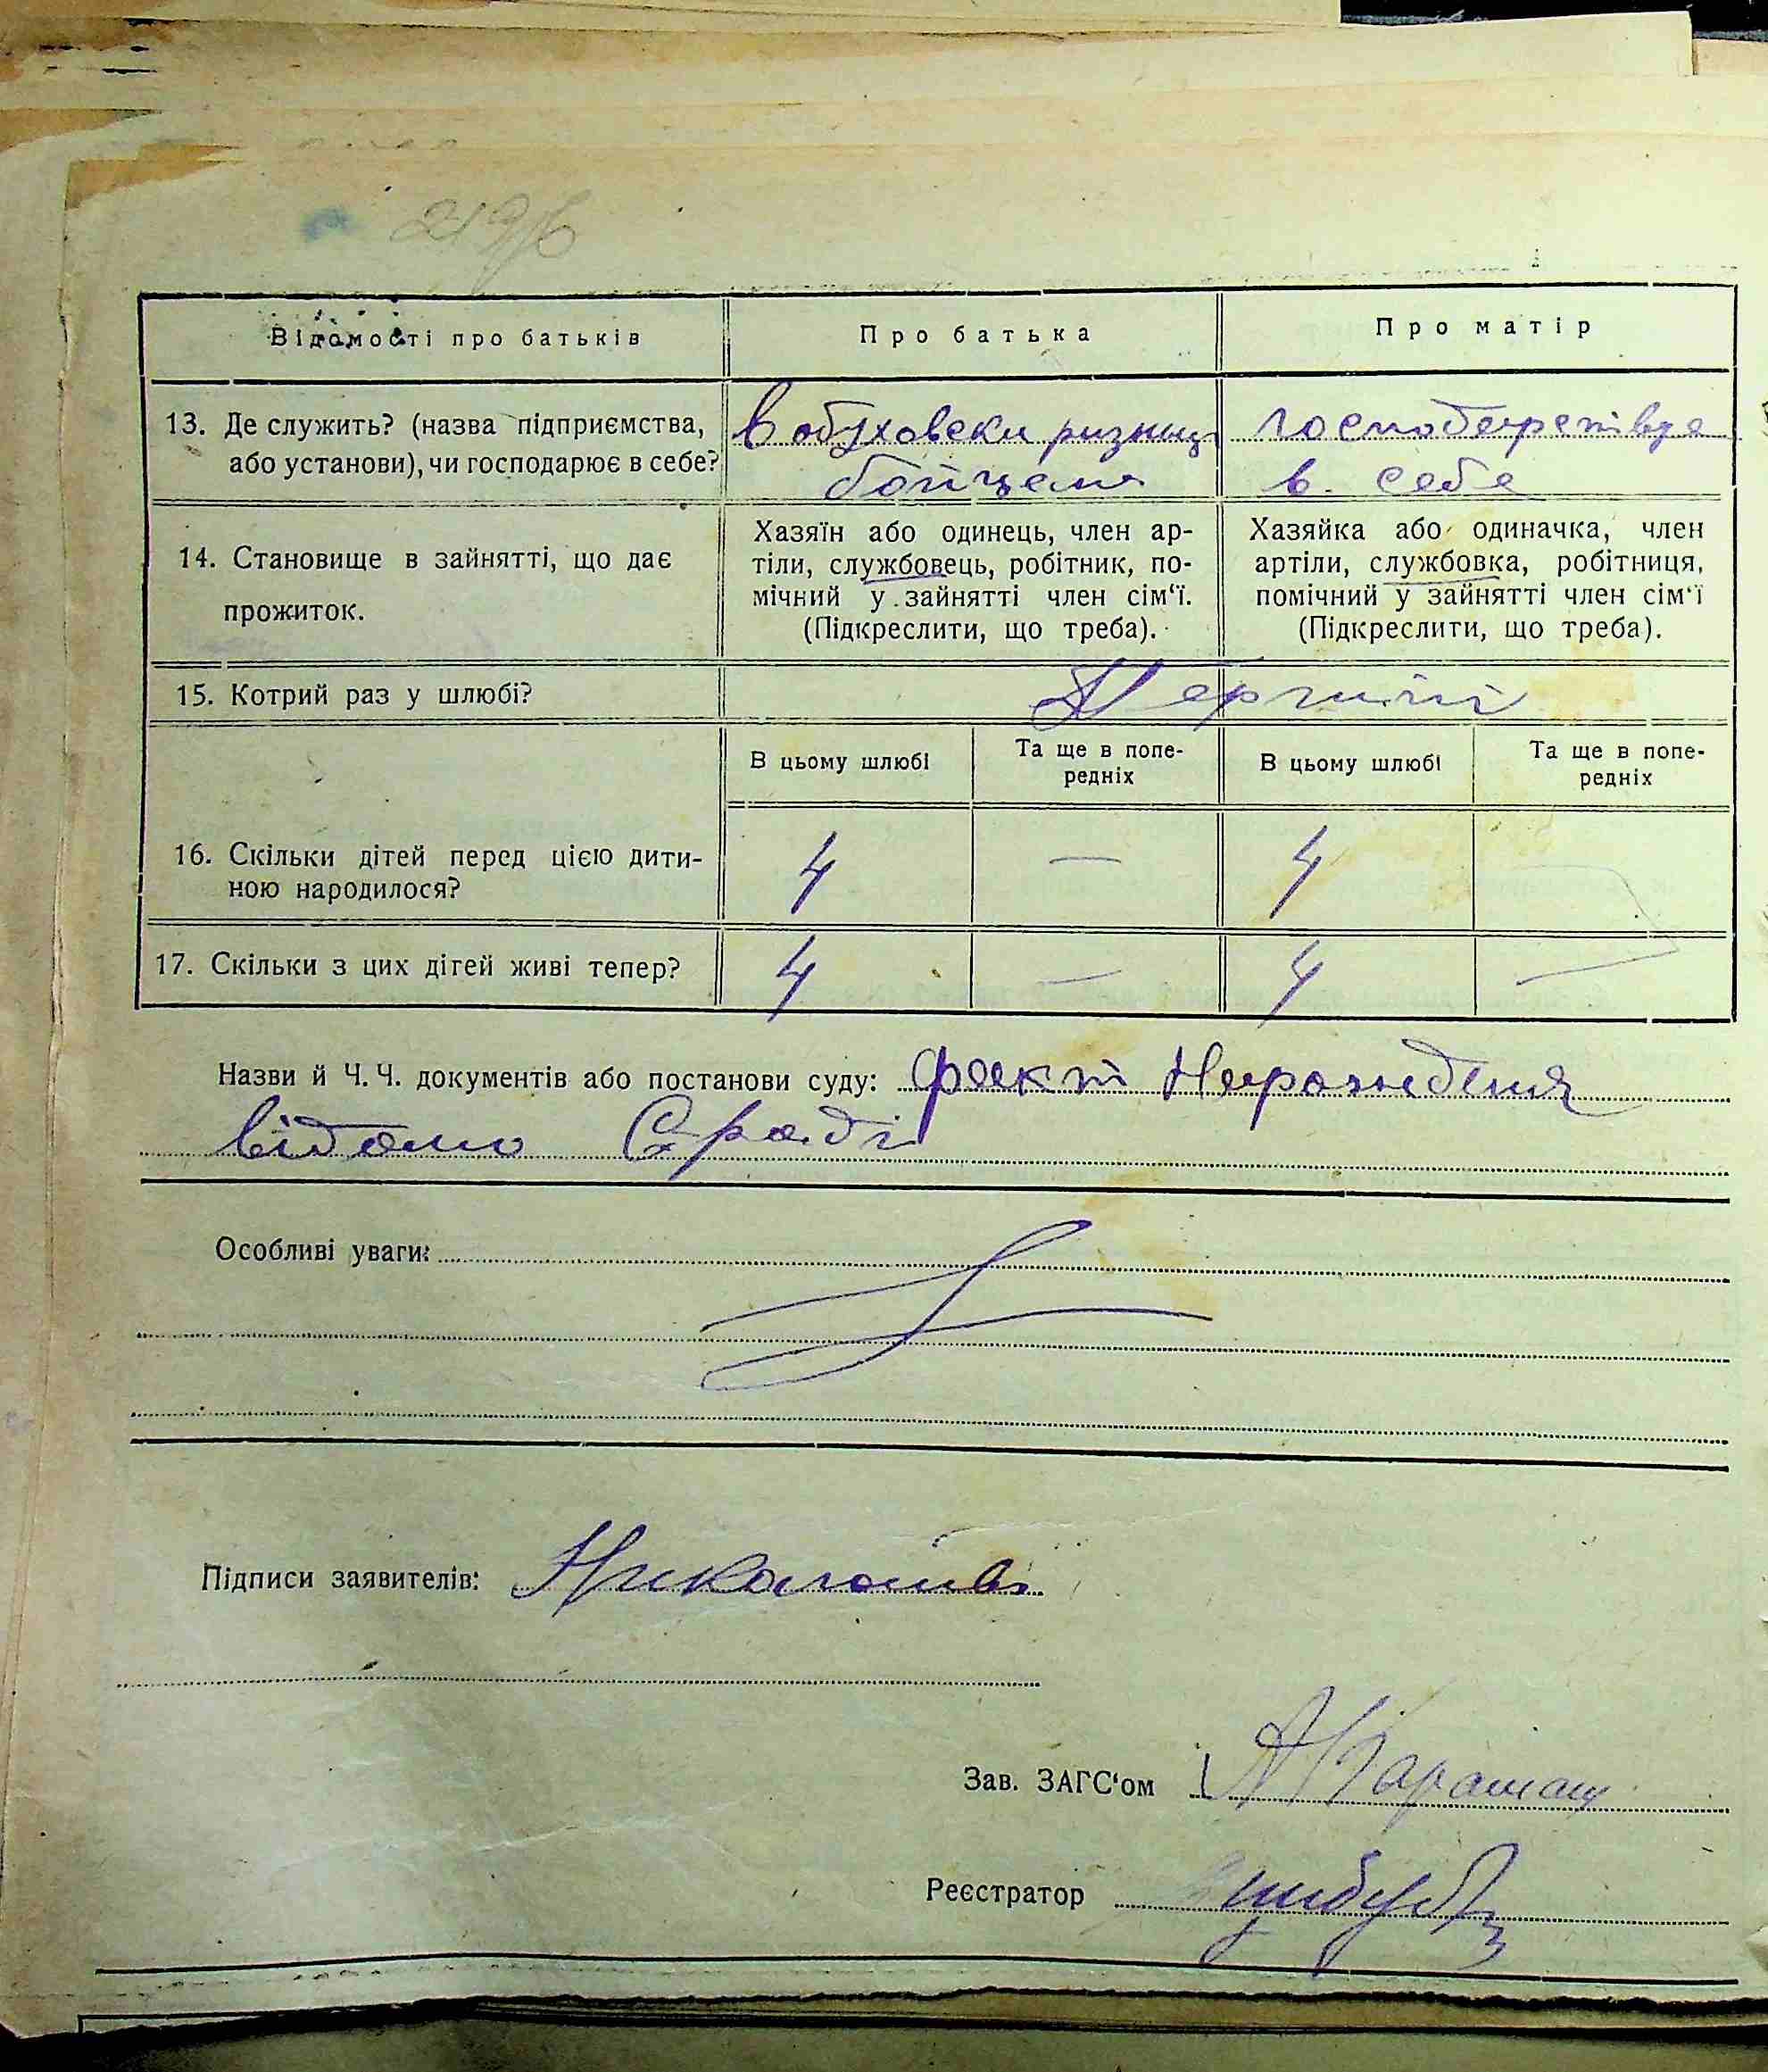 Відомості про батьків
Про батька
Про матір
13. Де служить? (назва підприємства,
або установи), чи господарює в себе?
в обуховски ризниц
бойцем
в себе
14. Становище в зайнятті, що дає
прожиток.
Хазяїн або одинець, член ар-
тіли, службовець, робітник, по-
мічний у зайнятті член сім‘ї.
(Підкреслити, що треба).
Хазяйка або одиначка, член
артіли, службовка, робітниця,
помічний у зайнятті член сім‘ї
(Підкреслити, що треба).
15. Котрий раз у шлюбі?
Перший
В цьому шлюбі
Та ще в попе-
редніх
В цьому шлюбі
Та ще в попе-
редніх
16. Скільки дітей перед цією дити-
ною народилося?
4 — 4
17. Скільки з цих дітей живі тепер?
4 — 4 —
Назви й Ч. Ч. документів або постанови суду: факт Нарождения
відомо Сраді
Особливі уваги:
Підписи заявителів:
Зав. ЗАГС‘ом
Реєстратор